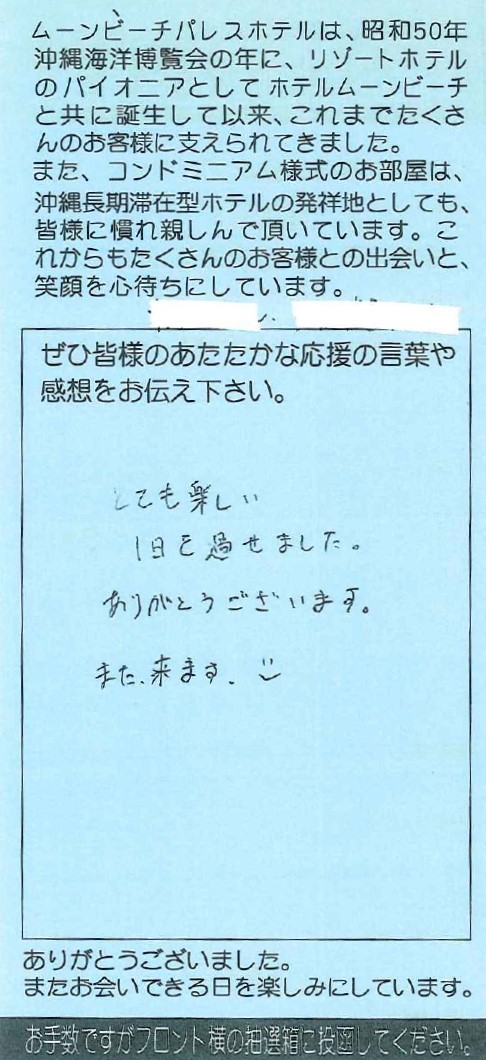 ムーンビーチパレスホテルは、昭和50年
沖縄海洋博覧会の年に、リゾートホテル
のパイオニアとしてホテルムーンビーチ
と共に誕生して以来、これまでたくさ
んのお客様に支えられてきました。
また、コンドミニアム様式のお部屋は、
沖縄長期滞在型ホテルの発祥地としても、
皆様に慣れ親しんで頂いています。こ
れからもたくさんのお客様との出会いと、
笑顔を心待ちにしています。
ぜひ皆様のあたたかな応援の言葉や
感想をお伝え下さい。
とても楽しい
1日を過せました。
ありがとうございます。
また、来ます.
ありがとうございました。
またお会いできる日を楽しみにしています。
お手数ですがフロント横の抽選箱に投函してください。